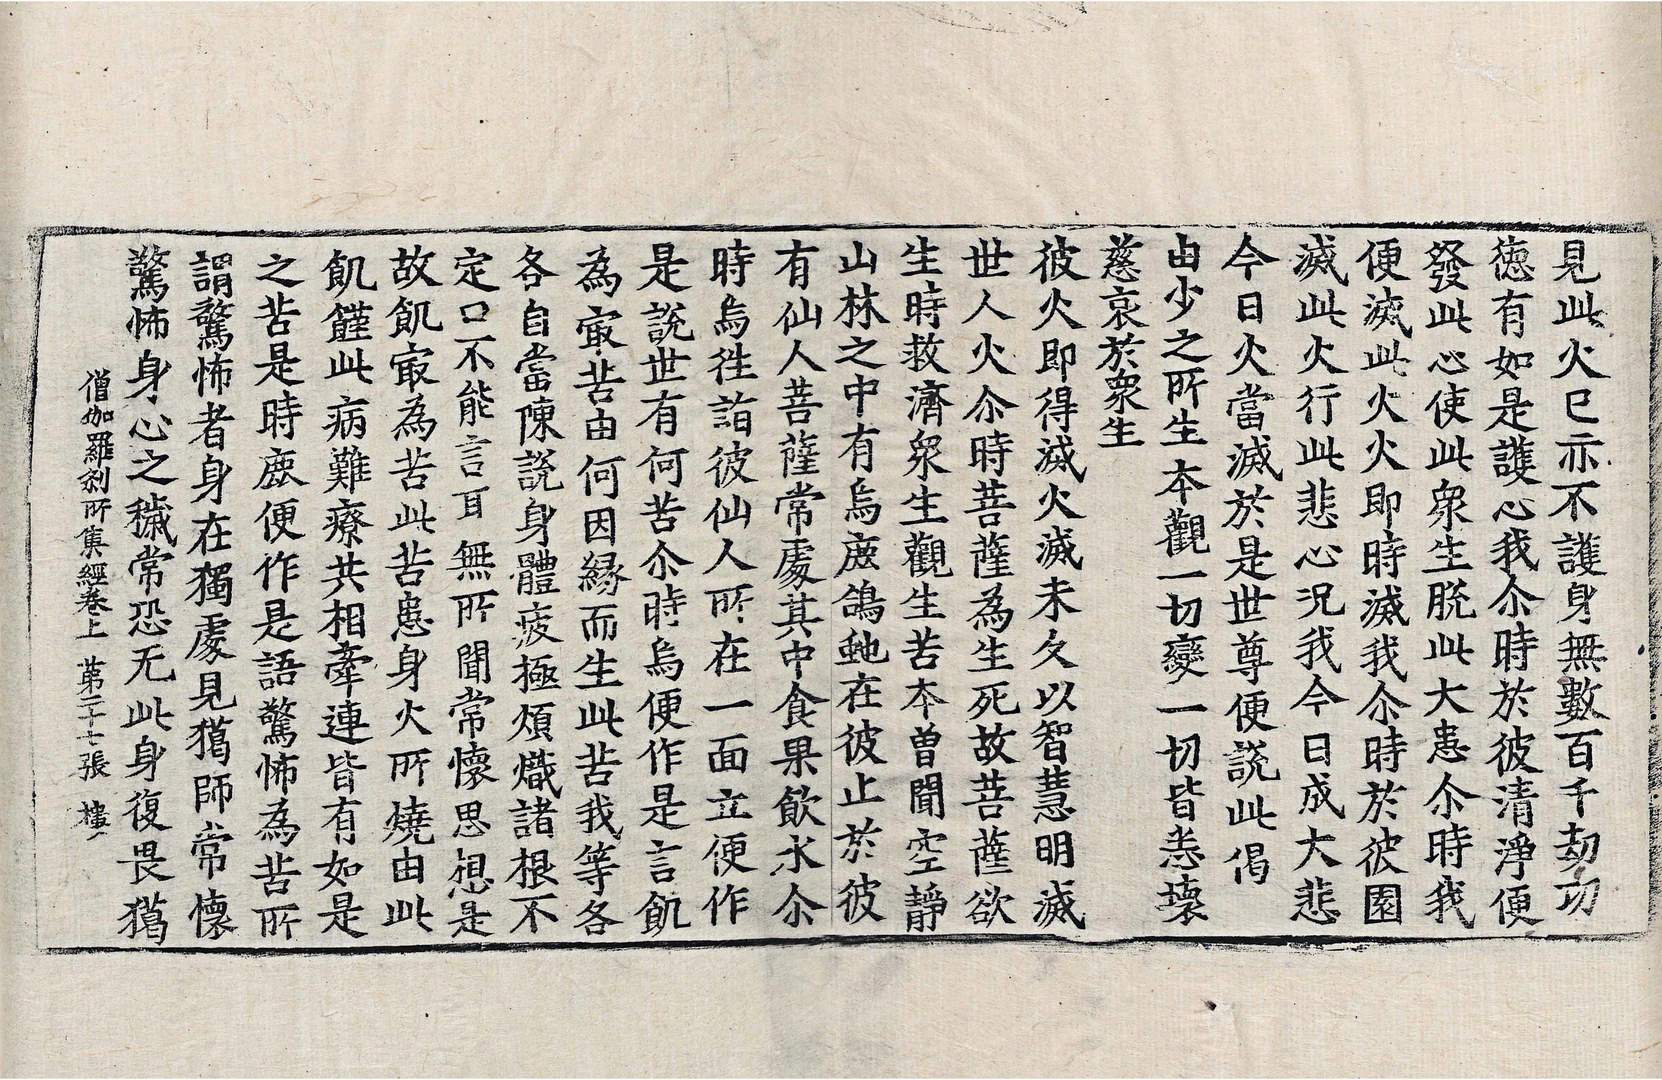 見此火已亦不護身無數百千劫功
德有如是護心我尒時於彼清淨便
發此心使此衆生脫此大患尒時我
便滅此火火即時滅我尒時於彼園
滅此火行此悲心况我今日成大悲
今日火當滅於是世尊便說此偈
由少之所生本觀一切變一切皆恚壞
慈哀於衆生
彼火即得滅火滅未久以智慧明滅
世人火尒時菩薩為生死故菩薩欲
生時救濟衆生觀生苦本曾聞空靜
山林之中有烏鹿鴿虵在彼止於彼
有仙人菩薩常處其中食果飲水尒
時烏徃詣彼仙人所在一面立便作
是說世有何苦尒時烏便作是言飢
為㝡苦由何因緣而生此苦我等各
各自當陳說身體疲極煩熾諸根不
定口不能言耳無所聞常懷思想是
故飢㝡為苦此苦患身火所燒由此
飢饉此病難療共相牽連皆有如是
之苦是時鹿便作是語驚怖為苦所
謂驚怖者身在獨處見獵師常懷
驚怖身心之穢常恐无此身復畏獵
僧伽羅刹所集經卷上 第二十七張 樓